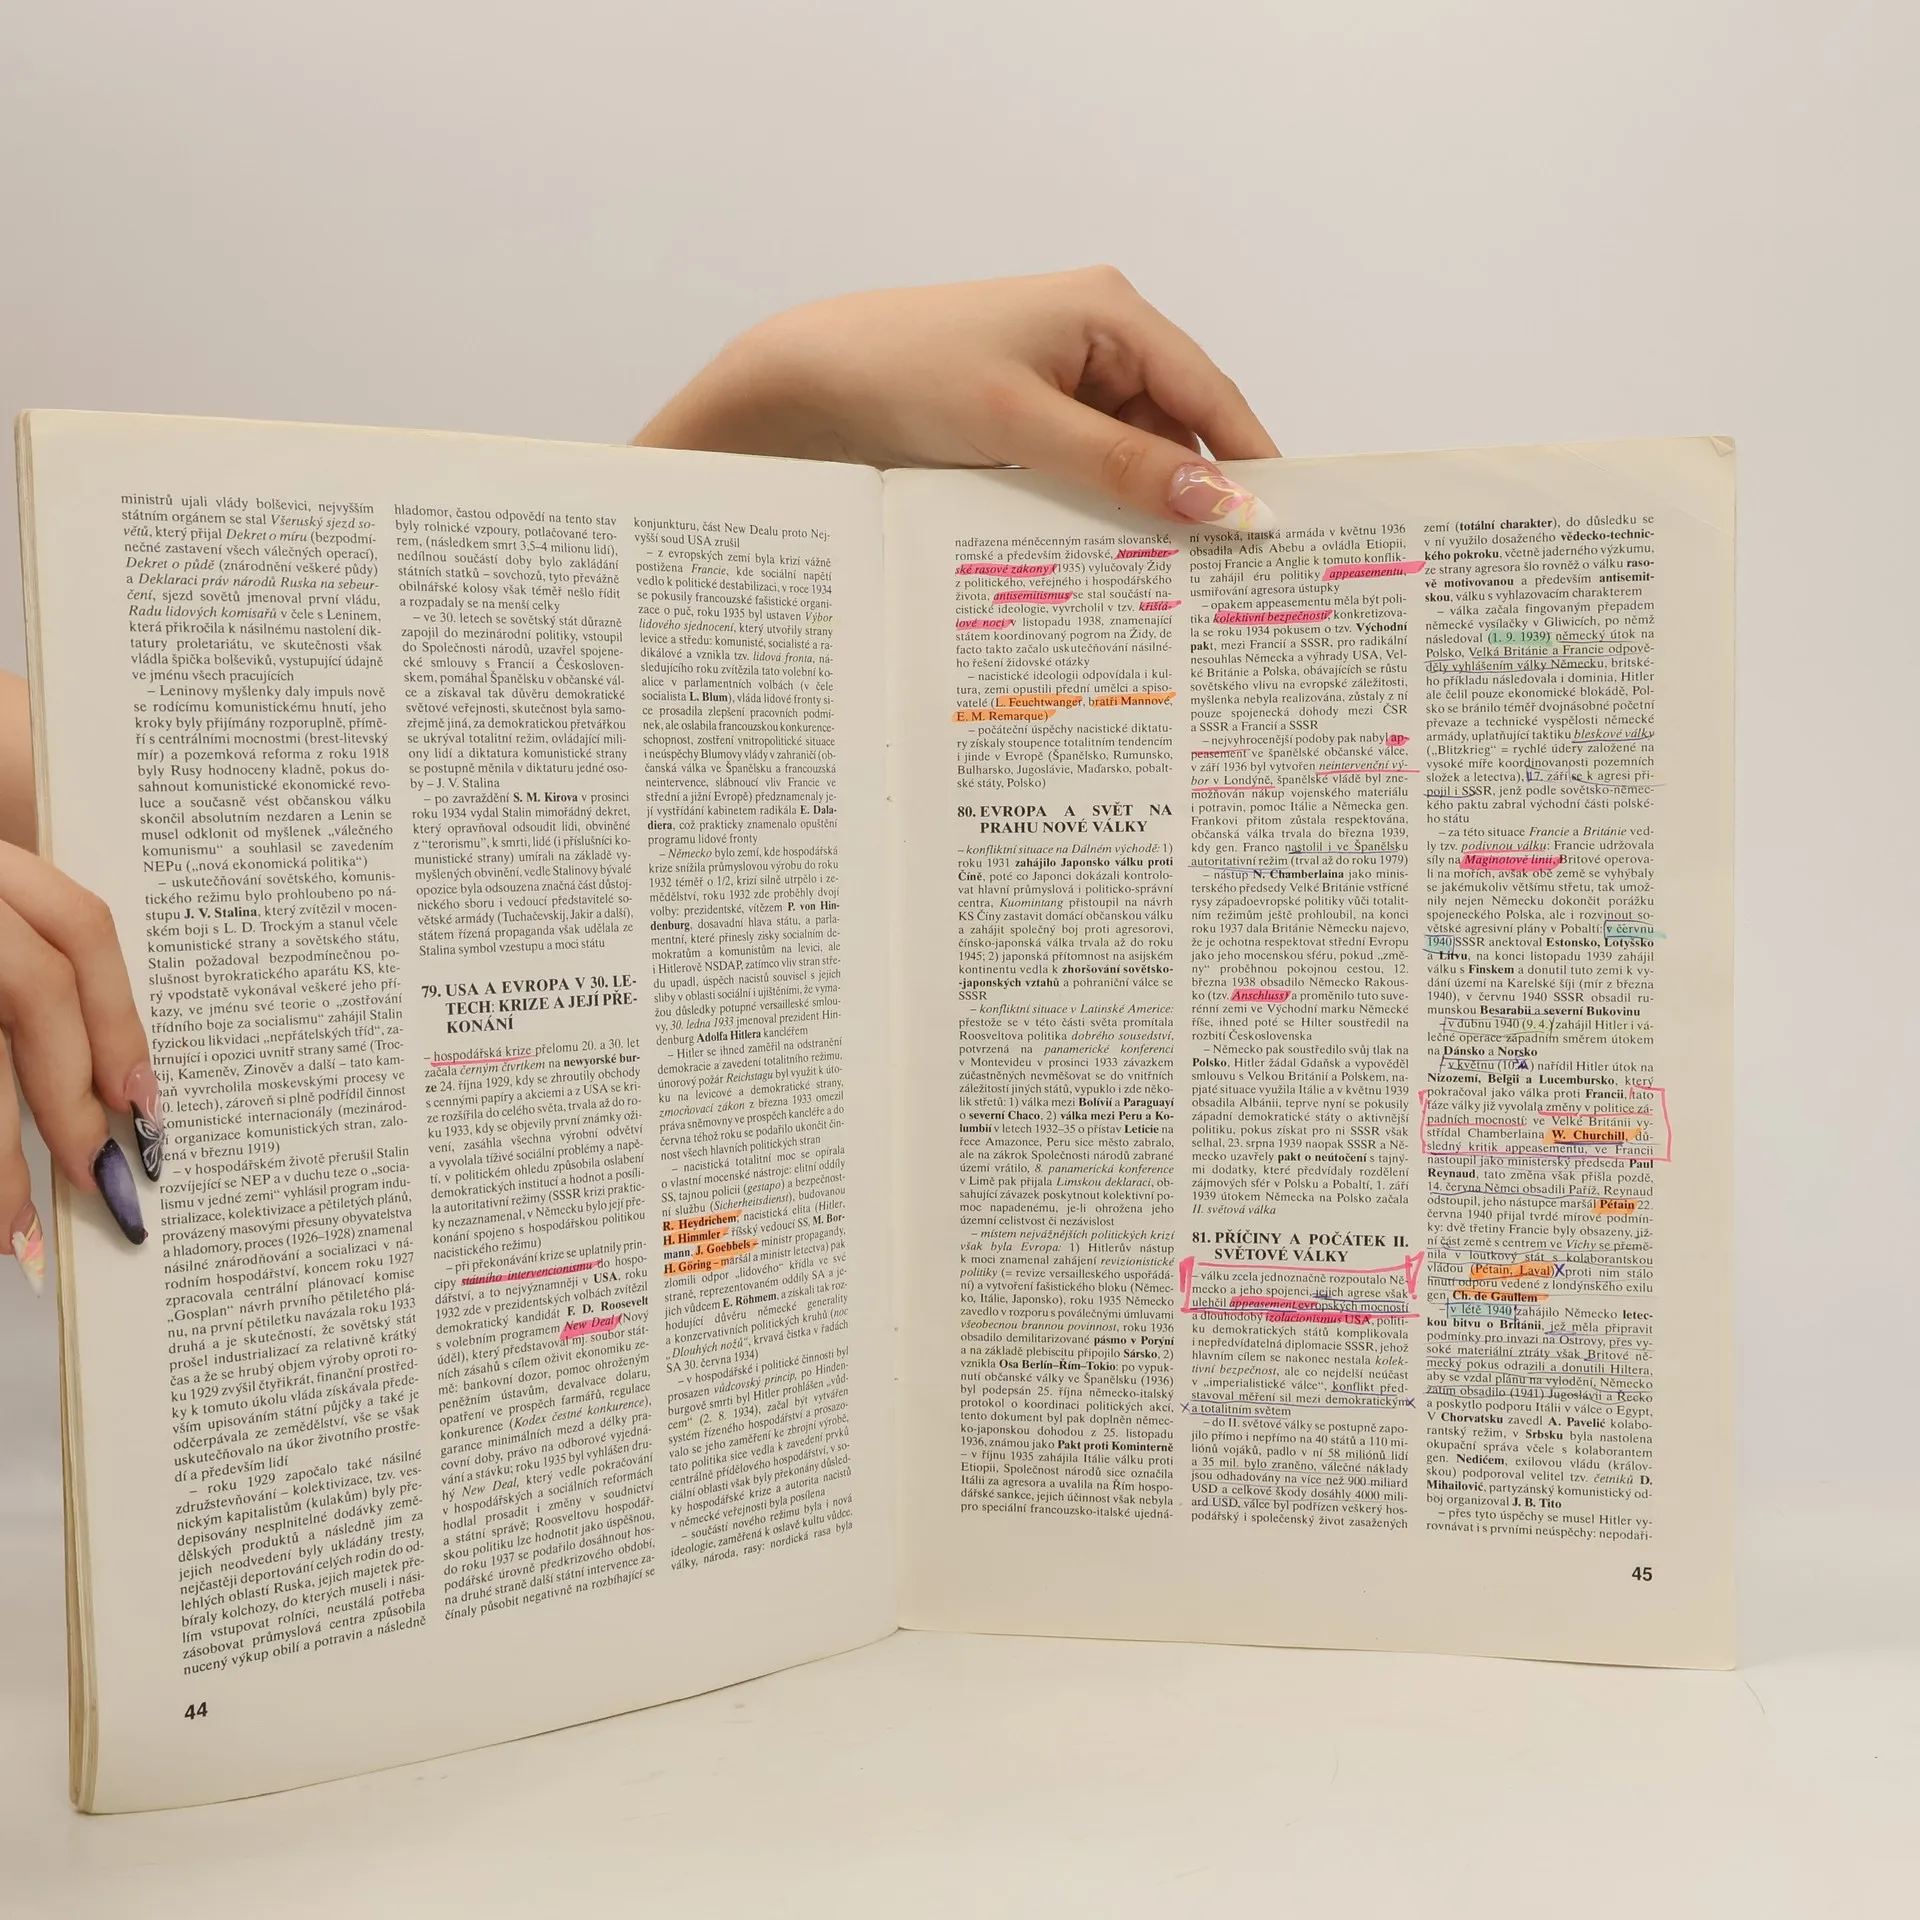 ministrů ujali vlády bolševici, nejvyšším
státním orgánem se stal Všeruský sjezd so-
větů, který přijal Dekret o míru (bezpodmí-
nečné zastavení všech válečných operací),
Dekret o půdě (znárodnění veškeré půdy)
a Deklaraci práv národů Ruska na sebeur-
čení, sjezd sovětů jmenoval první vládu,
Radu lidových komisařů v čele s Leninem,
která přikročila k násilnému nastolení dik-
tatury proletariátu, ve skutečnosti však
vládla špička bolševiků, vystupující údajně
ve jménu všech pracujících
– Leninovy myšlenky daly impuls nově
se rodícímu komunistickému hnutí, jeho
kroky byly přijímány rozporuplně, přímě-
ří s centrálními mocnostmi (brest-litevský
mír) a pozemková reforma z roku 1918
byly Rusy hodnoceny kladně, pokus do-
sáhnout komunistické ekonomické revo-
luce a současně vést občanskou válku
skončil absolutním nezdarem a Lenin se
musel odklonit od myšlenek „válečného
komunismu“ a souhlasil se zavedením
NEPu („nová ekonomická politika“)
– uskutečňování sovětského, komunis-
tického režimu bylo prohloubeno po ná-
stupu J. V. Stalina, který zvítězil v mocen-
ském boji s L. D. Trockým a stanul v čele
komunistické strany a sovětského státu,
Stalin požadoval bezpodmínečnou po-
slušnost byrokratického aparátu KS, kte-
rý vpodstatě vykonával veškeré jeho pří-
kazy, ve jménu své teorie o „zostřování
třídního boje za socialismu“ zahájil Stalin
fyzickou likvidaci „nepřátelských tříd“, za-
hrnující i opozici uvnitř strany samé (Troc-
kij, Kameněv, Zinověv a další – tato kam-
paň vyvrcholila moskevskými procesy ve
0. letech), zároveň si plně podřídil činnost
komunistické internacionály (mezinárod-
organizace komunistických stran, zalo-
ená v březnu 1919)
– v hospodářském životě přerušil Stalin
rozvíjející se NEP a v duchu teze o „socia-
lismu v jedné zemi“ vyhlásil program indu-
strializace, kolektivizace a pětiletých plánů,
provázený masovými přesuny obyvatelstva
a hladomory, proces (1926–1928) znamenal
násilné znárodňování a socializaci v ná-
rodním hospodářství, koncem roku 1927
zpracovala centrální plánovací komise
„Gosplan“ návrh prvního pětiletého plá-
nu, na první pětiletku navázala roku 1933
druhá a je skutečností, že sovětský stát
prošel industrializací za relativně krátký
čas a že se hrubý objem výroby oproti ro-
ku 1929 zvýšil čtyřikrát, finanční prostřed-
ky k tomuto úkolu vláda získávala přede-
vším upisováním státní půjčky a také je
odčerpávala ze zemědělství, vše se však
uskutečňovalo na úkor životního prostře-
dí a především lidí
– roku 1929 započalo také násilné
združstevňování – kolektivizace, tzv. ves-
nickým kapitalistům (kulakům) byly pře-
depisovány nesplnitelné dodávky země-
dělských produktů a následně jim za
jejich neodvedení byly ukládány tresty,
nejčastěji deportování celých rodin do od-
lehlých oblastí Ruska, jejich majetek pře-
bíraly kolchozy, do kterých museli i nási-
lím vstupovat rolníci, neustálá potřeba
zásobovat průmyslová centra způsobila
nucený výkup obilí a potravin a následně
44
hladomor, častou odpovědí na tento stav
byly rolnické vzpoury, potlačované tero-
rem, (následkem smrt 3,5–4 milionu lidí),
nedílnou součástí doby bylo zakládání
státních statků – sovchozů, tyto převážně
obilnářské kolosy však téměř nešlo řídit
a rozpadaly se na menší celky
– ve 30. letech se sovětský stát důrazně
zapojil do mezinárodní politiky, vstoupil
do Společnosti národů, uzavřel spojene-
cké smlouvy s Francií a Českosloven-
skem, pomáhal Španělsku v občanské vál-
ce a získával tak důvěru demokratické
světové veřejnosti, skutečnost byla samo-
zřejmě jiná, za demokratickou přetvářkou
se ukrýval totalitní režim, ovládající mili-
ony lidí a diktatura komunistické strany
se postupně měnila v diktaturu jedné oso-
by – J. V. Stalina
– po zavraždění S. M. Kirova v prosinci
roku 1934 vydal Stalin mimořádný dekret,
který opravňoval odsoudit lidi, obviněné
z “terorismu”, k smrti, lidé (i příslušníci ko-
munistické strany) umírali na základě vy-
myšlených obvinění, vedle Stalinovy bývalé
opozice byla odsouzena značná část důstoj-
nického sboru i vedoucí představitelé so-
větské armády (Tuchačevskij, Jakir a další),
státem řízená propaganda však udělala ze
Stalina symbol vzestupu a moci státu
79. USA A EVROPA V 30. LE-
TECH: KRIZE A JEJÍ PŘE-
KONÁNÍ
– hospodářská krize přelomu 20. a 30. let
začala černým čtvrtkem na newyorské bur-
ze 24. října 1929, kdy se zhroutily obchody
s cennými papíry a akciemi a z USA se kri-
ze rozšířila do celého světa, trvala až do ro-
ku 1933, kdy se objevily první známky oži-
vení, zasáhla všechna výrobní odvětví
a vyvolala tíživé sociální problémy a napě-
tí, v politickém ohledu způsobila oslabení
demokratických institucí a hodnot a posíli-
la autoritativní režimy (SSSR krizi praktic-
ky nezaznamenal, v Německu bylo její pře-
konání spojeno s hospodářskou politikou
nacistického režimu)
– při překonávání krize se uplatnily prin-
cipy státního intervencionismu do hospo-
dářství, a to nejvýznamněji v USA, roku
1932 zde v prezidentských volbách zvítězil
demokratický kandidát F. D. Roosevelt
s volebním programem New Deal (Nový
úděl), který představoval mj. soubor stát-
ních zásahů s cílem oživit ekonomiku ze-
mě: bankovní dozor, pomoc ohroženým
peněžním ústavům, devalvace dolaru,
opatření ve prospěch farmářů, regulace
konkurence (Kodex čestné konkurence),
garance minimálních mezd a délky pra-
covní doby, právo na odborové vyjedná-
vání a stávku; roku 1935 byl vyhlášen dru-
hý New Deal, který vedle pokračování
v hospodářských a sociálních reformách
hodlal prosadit i změny v soudnictví
a státní správě; Rooseveltovu hospodář-
skou politiku lze hodnotit jako úspěšnou,
do roku 1937 se podařilo dosáhnout hos-
podářské úrovně předkrizového období,
na druhé straně další státní intervence za-
čínaly působit negativně na rozbíhající se
konjunkturu, část New Dealu proto Nej-
vyšší soud USA zrušil
– z evropských zemí byla krizí vážně
postižena Francie, kde sociální napětí
vedlo k politické destabilizaci, v roce 1934
se pokusily francouzské fašistické organi-
zace o puč, roku 1935 byl ustaven Výbor
lidového sjednocení, který utvořily strany
levice a středu: komunisté, socialisté a ra-
dikálové a vznikla tzv. lidová fronta, ná-
sledujícího roku zvítězila tato volební ko-
alice v parlamentních volbách (v čele
socialista L. Blum), vláda lidové fronty si-
ce prosadila zlepšení pracovních podmí-
nek, ale oslabila francouzskou konkurence-
schopnost, zostření vnitropolitické situace
i neúspěchy Blumovy vlády v zahraničí (ob-
čanská válka ve Španělsku a francouzská
neintervence, slábnoucí vliv Francie ve
střední a jižní Evropě) předznamenaly je-
jí vystřídání kabinetem radikála E. Dala-
diera, což prakticky znamenalo opuštění
programu lidové fronty
– Německo bylo zemí, kde hospodářská
krize snížila průmyslovou výrobu do roku
1932 téměř o 1/2, krizí silně utrpělo i ze-
mědělství, roku 1932 zde proběhly dvojí
volby: prezidentské, vítězem P. von Hin-
denburg, dosavadní hlava státu, a parla-
mentní, které přinesly zisky sociálním de-
mokratům a komunistům na levici, ale
i Hitlerově NSDAP, zatímco vliv stran stře-
du upadl, úspěch nacistů souvisel s jejich
sliby v oblasti sociální i ujištěními, že vyma-
žou důsledky potupné versailleské smlou-
vy, 30. ledna 1933 jmenoval prezident Hin-
denburg Adolfa Hitlera kancléřem
– Hitler se ihned zaměřil na odstranění
demokracie a zavedení totalitního režimu,
únorový požár Reichstagu byl využit k úto-
ku na levicové a demokratické strany,
zmocňovací zákon z března 1933 omezil
práva sněmovny ve prospěch kancléře a do
června téhož roku se podařilo ukončit čin-
nost všech politických stran
– nacistická totalitní moc se opírala
o vlastní mocenské nástroje: elitní oddíly
SS, tajnou policii (gestapo) a bezpečnost-
ní službu (Sicherheitsdienst), budovanou
R. Heydrichem, nacistická elita (Hitler,
H. Himmler – říšský vedoucí SS, M. Bor-
mann, J. Goebbels – ministr propagandy,
H. Göring – maršál a ministr letectva) pak
zlomili odpor „lidového“ křídla ve své
straně, reprezentované oddíly SA a je-
jich vůdcem E. Röhmem, a získali tak roz-
hodující důvěru německé generality
a konzervativních politických kruhů (noc
„Dlouhých nožů“, krvavá čistka v řadách
SA 30. června 1934)
– v hospodářské i politické činnosti byl
prosazen vůdcovský princip, po Hinden-
burgově smrti byl Hitler prohlášen „vůd-
cem“ (2. 8. 1934), začal být vytvářen
systém řízeného hospodářství a prosazo-
valo se jeho zaměření ke zbrojní výrobě,
tato politika sice vedla k zavedení prvků
centrálně přídělového hospodářství, v so-
ciální oblasti však byly překonány důsled-
ky hospodářské krize a autorita nacistů
v německé veřejnosti byla posílena
– součástí nového režimu byla i nová
ideologie, zaměřená k oslavě kultu vůdce,
války, národa, rasy: nordická rasa byla
nadřazena méněcenným rasám slovanské,
romské a především židovské, Norimber-
ské rasové zákony (1935) vylučovaly Židy
z politického, veřejného i hospodářského
života, antisemitismus se stal součástí na-
cistické ideologie, vyvrcholil v tzv. křišťá-
lové noci v listopadu 1938, znamenající
státem koordinovaný pogrom na Židy, de
facto takto začalo uskutečňování násilné-
ho řešení židovské otázky
– nacistické ideologii odpovídala i kul-
tura, zemi opustili přední umělci a spiso-
vatelé (L. Feuchtwanger, bratři Mannové,
E. M. Remarque)
– počáteční úspěchy nacistické diktatu-
ry získaly stoupence totalitním tendencím
i jinde v Evropě (Španělsko, Rumunsko,
Bulharsko, Jugoslávie, Maďarsko, pobalt-
ské státy, Polsko)
80. EVROPA A SVĚT NA
PRAHU NOVÉ VÁLKY
– konfliktní situace na Dálném východě: 1)
roku 1931 zahájilo Japonsko válku proti
Číně, poté co Japonci dokázali kontrolo-
vat hlavní průmyslová i politicko-správní
centra, Kuomintang přistoupil na návrh
KS Číny zastavit domácí občanskou válku
a zahájit společný boj proti agresorovi,
čínsko-japonská válka trvala až do roku
1945; 2) japonská přítomnost na asijském
kontinentu vedla k zhoršování sovětsko-
-japonských vztahů a pohraniční válce se
SSSR
– konfliktní situace v Latinské Americe:
přestože se v této části světa promítala
Rooseveltova politika dobrého sousedství,
potvrzená na panamerické konferenci
v Montevideu v prosinci 1933 závazkem
zúčastněných nevměšovat se do vnitřních
záležitostí jiných států, vypuklo i zde něko-
lik střetů: 1) válka mezi Bolívií a Paraguayí
o severní Chaco, 2) válka mezi Peru a Ko-
lumbií v letech 1932–35 o přístav Leticie na
řece Amazonce, Peru sice město zabralo,
ale na zákrok Společnosti národů zabrané
území vrátilo, 8. panamerická konference
v Limě pak přijala Limskou deklaraci, ob-
sahující závazek poskytnout kolektivní po-
moc napadenému, je-li ohrožena jeho
územní celistvost či nezávislost
– místem nejvážnějších politických krizí
však byla Evropa: 1) Hitlerův nástup
k moci znamenal zahájení revizionistické
politiky (= revize versailleského uspořádá-
ní) a vytvoření fašistického bloku (Němec-
ko, Itálie, Japonsko), roku 1935 Německo
zavedlo v rozporu s poválečnými úmluvami
všeobecnou brannou povinnost, roku 1936
obsadilo demilitarizované pásmo v Porýní
a na základě plebiscitu připojilo Sársko, 2)
vznikla Osa Berlín–Řím–Tokio: po vypuk-
nutí občanské války ve Španělsku (1936)
byl podepsán 25. října německo-italský
protokol o koordinaci politických akcí,
tento dokument byl pak doplněn němec-
ko-japonskou dohodou z 25. listopadu
1936, známou jako Pakt proti Kominterně
– v říjnu 1935 zahájila Itálie válku proti
Etiopii, Společnost národů sice označila
Itálii za agresora a uvalila na Řím hospo-
dářské sankce, jejich účinnost však nebyla
pro speciální francouzsko-italské ujedná-
ní vysoká, italská armáda v květnu 1936
obsadila Adis Abebu a ovládla Etiopii,
postoj Francie a Anglie k tomuto konflik-
tu zahájil éru politiky appeasementu,
usmiřování agresora ústupky
– opakem appeasementu měla být poli-
tika kolektivní bezpečnosti, konkretizova-
la se roku 1934 pokusem o tzv. Východní
pakt, mezi Francií a SSSR, pro radikální
nesouhlas Německa a výhrady USA, Vel-
ké Británie a Polska, obávajících se růstu
sovětského vlivu na evropské záležitosti,
myšlenka nebyla realizována, zůstaly z ní
pouze spojenecká dohody mezi ČSR
a SSSR a Francií a SSSR
– nejvyhrocenější podoby pak nabyl ap-
peasement ve španělské občanské válce,
v září 1936 byl vytvořen neintervenční vý-
bor v Londýně, španělské vládě byl zne-
možňován nákup vojenského materiálu
i potravin, pomoc Itálie a Německa gen.
Frankovi přitom zůstala respektována,
občanská válka trvala do března 1939,
kdy gen. Franco nastolil i ve Španělsku
autoritativní režim (trval až do roku 1979)
– nástup N. Chamberlaina jako minis-
terského předsedy Velké Británie vstřícné
rysy západoevropské politiky vůči totalit-
ním režimům ještě prohloubil, na konci
roku 1937 dala Británie Německu najevo,
že je ochotna respektovat střední Evropu
jako jeho mocenskou sféru, pokud „změ-
ny“ proběhnou pokojnou cestou, 12.
března 1938 obsadilo Německo Rakous-
ko (tzv. Anschluss) a proměnilo tuto suve-
rénní zemi ve Východní marku Německé
říše, ihned poté se Hilter soustředil na
rozbití Československa
– Německo pak soustředilo svůj tlak na
Polsko, Hitler žádal Gdaňsk a vypověděl
smlouvu s Velkou Británií a Polskem, na-
pjaté situace využila Itálie a v květnu 1939
obsadila Albánii, teprve nyní se pokusily
západní demokratické státy o aktivnější
politiku, pokus získat pro ni SSSR však
selhal, 23. srpna 1939 naopak SSSR a Ně-
mecko uzavřely pakt o neútočení s tajný-
mi dodatky, které předvídaly rozdělení
zájmových sfér v Polsku a Pobaltí, 1. září
1939 útokem Německa na Polsko začala
II. světová válka
81. PŘÍČINY A POČÁTEK II.
SVĚTOVÉ VÁLKY
– válku zcela jednoznačně rozpoutalo Ně-
mecko a jeho spojenci, jejich agrese však
ulehčil appeasement evropských mocností
a dlouhodobý izolacionismus USA, politi-
ku demokratických států komplikovala
i nepředvídatelná diplomacie SSSR, jehož
hlavním cílem se nakonec nestala kolek-
tivní bezpečnost, ale co nejdelší neúčast
v „imperialistické válce“, konflikt před-
stavoval měření sil mezi demokratickým
a totalitním světem
– do II. světové války se postupně zapo-
jilo přímo i nepřímo na 40 států a 110 mi-
liónů vojáků, padlo v ní 58 miliónů lidí
a 35 mil. bylo zraněno, válečné náklady
jsou odhadovány na více než 900 miliard
USD a celkové škody dosáhly 4000 mili-
ard USD, válce byl podřízen veškerý hos-
podářský i společenský život zasažených
zemí (totální charakter), do důsledku se
v ní využilo dosaženého vědecko-technic-
kého pokroku, včetně jaderného výzkumu,
ze strany agresora šlo rovněž o válku raso-
vě motivovanou a především antisemit-
skou, válku s vyhlazovacím charakterem
– válka začala fingovaným přepadem
německé vysílačky v Gliwicích, po němž
následoval (1. 9. 1939) německý útok na
Polsko, Velká Británie a Francie odpově-
děly vyhlášením války Německu, britské-
ho příkladu následovala i dominia, Hitler
ale čelil pouze ekonomické blokádě, Pol-
sko se bránilo téměř dvojnásobné početní
převaze a technické vyspělosti německé
armády, uplatňující taktiku bleskové války
(„Blitzkrieg“ = rychlé údery založené na
vysoké míře koordinovanosti pozemních
složek a letectva), 17. září se k agresi při-
pojil i SSSR, jenž podle sovětsko-němec-
kého paktu zabral východní části polské-
ho státu
– za této situace Francie a Británie ved-
ly tzv. podivnou válku: Francie udržovala
síly na Maginotově linii, Britové operova-
li na mořích, avšak obě země se vyhýbaly
se jakémukoliv většímu střetu, tak umož-
nily nejen Německu dokončit porážku
spojeneckého Polska, ale i rozvinout so-
větské agresivní plány v Pobaltí: v červnu
1940 SSSR anektoval Estonsko, Lotyšsko
a Litvu, na konci listopadu 1939 zahájil
válku s Finskem a donutil tuto zemi k vy-
dání území na Karelské šíji (mír z března
1940), v červnu 1940 SSSR obsadil ru-
munskou Besarabii a severní Bukovinu
– v dubnu 1940 (9. 4.) zahájil Hitler i vá-
lečné operace západním směrem útokem
na Dánsko a Norsko
– v květnu (10. ) nařídil Hitler útok na
Nizozemí, Belgii a Lucembursko, který
pokračoval jako válka proti Francii, tato
fáze války již vyvolala změny v politice zá-
padních mocností: ve Velké Británii vy-
střídal Chamberlaina W. Churchill, dů-
sledný kritik appeasementu, ve Francii
nastoupil jako ministerský předseda Paul
Reynaud, tato změna však přišla pozdě,
14. června Němci obsadili Paříž, Reynaud
odstoupil, jeho nástupce maršál Pétain 22.
června 1940 přijal tvrdé mírové podmín-
ky: dvě třetiny Francie byly obsazeny, již-
ní část země s centrem ve Vichy se přemě-
nila v loutkový stát s kolaborantskou
vládou (Pétain, Laval) proti nim stálo
hnutí odporu vedené z londýnského exilu
gen. Ch. de Gaullem
– v létě 1940 zahájilo Německo letec-
kou bitvu o Británii, jež měla připravit
podmínky pro invazi na Ostrovy, přes vy-
soké materiální ztráty však Britové ně-
mecký pokus odrazili a donutili Hitlera,
aby se vzdal plánu na vylodění, Německo
zatím obsadilo (1941) Jugoslávii a Řecko
a poskytlo podporu Itálii v válce o Egypt,
V Chorvatsku zavedl A. Pavelić kolabo-
rantský režim, v Srbsku byla nastolena
okupační správa včele s kolaborantem
gen. Nedićem, exilovou vládu (královs-
kou) podporoval velitel tzv. četniků D.
Mihailović, partyzánský komunistický od-
boj organizoval J. B. Tito
– přes tyto úspěchy se musel Hitler vy-
rovnávat i s prvními neúspěchy: nepodaři-
45